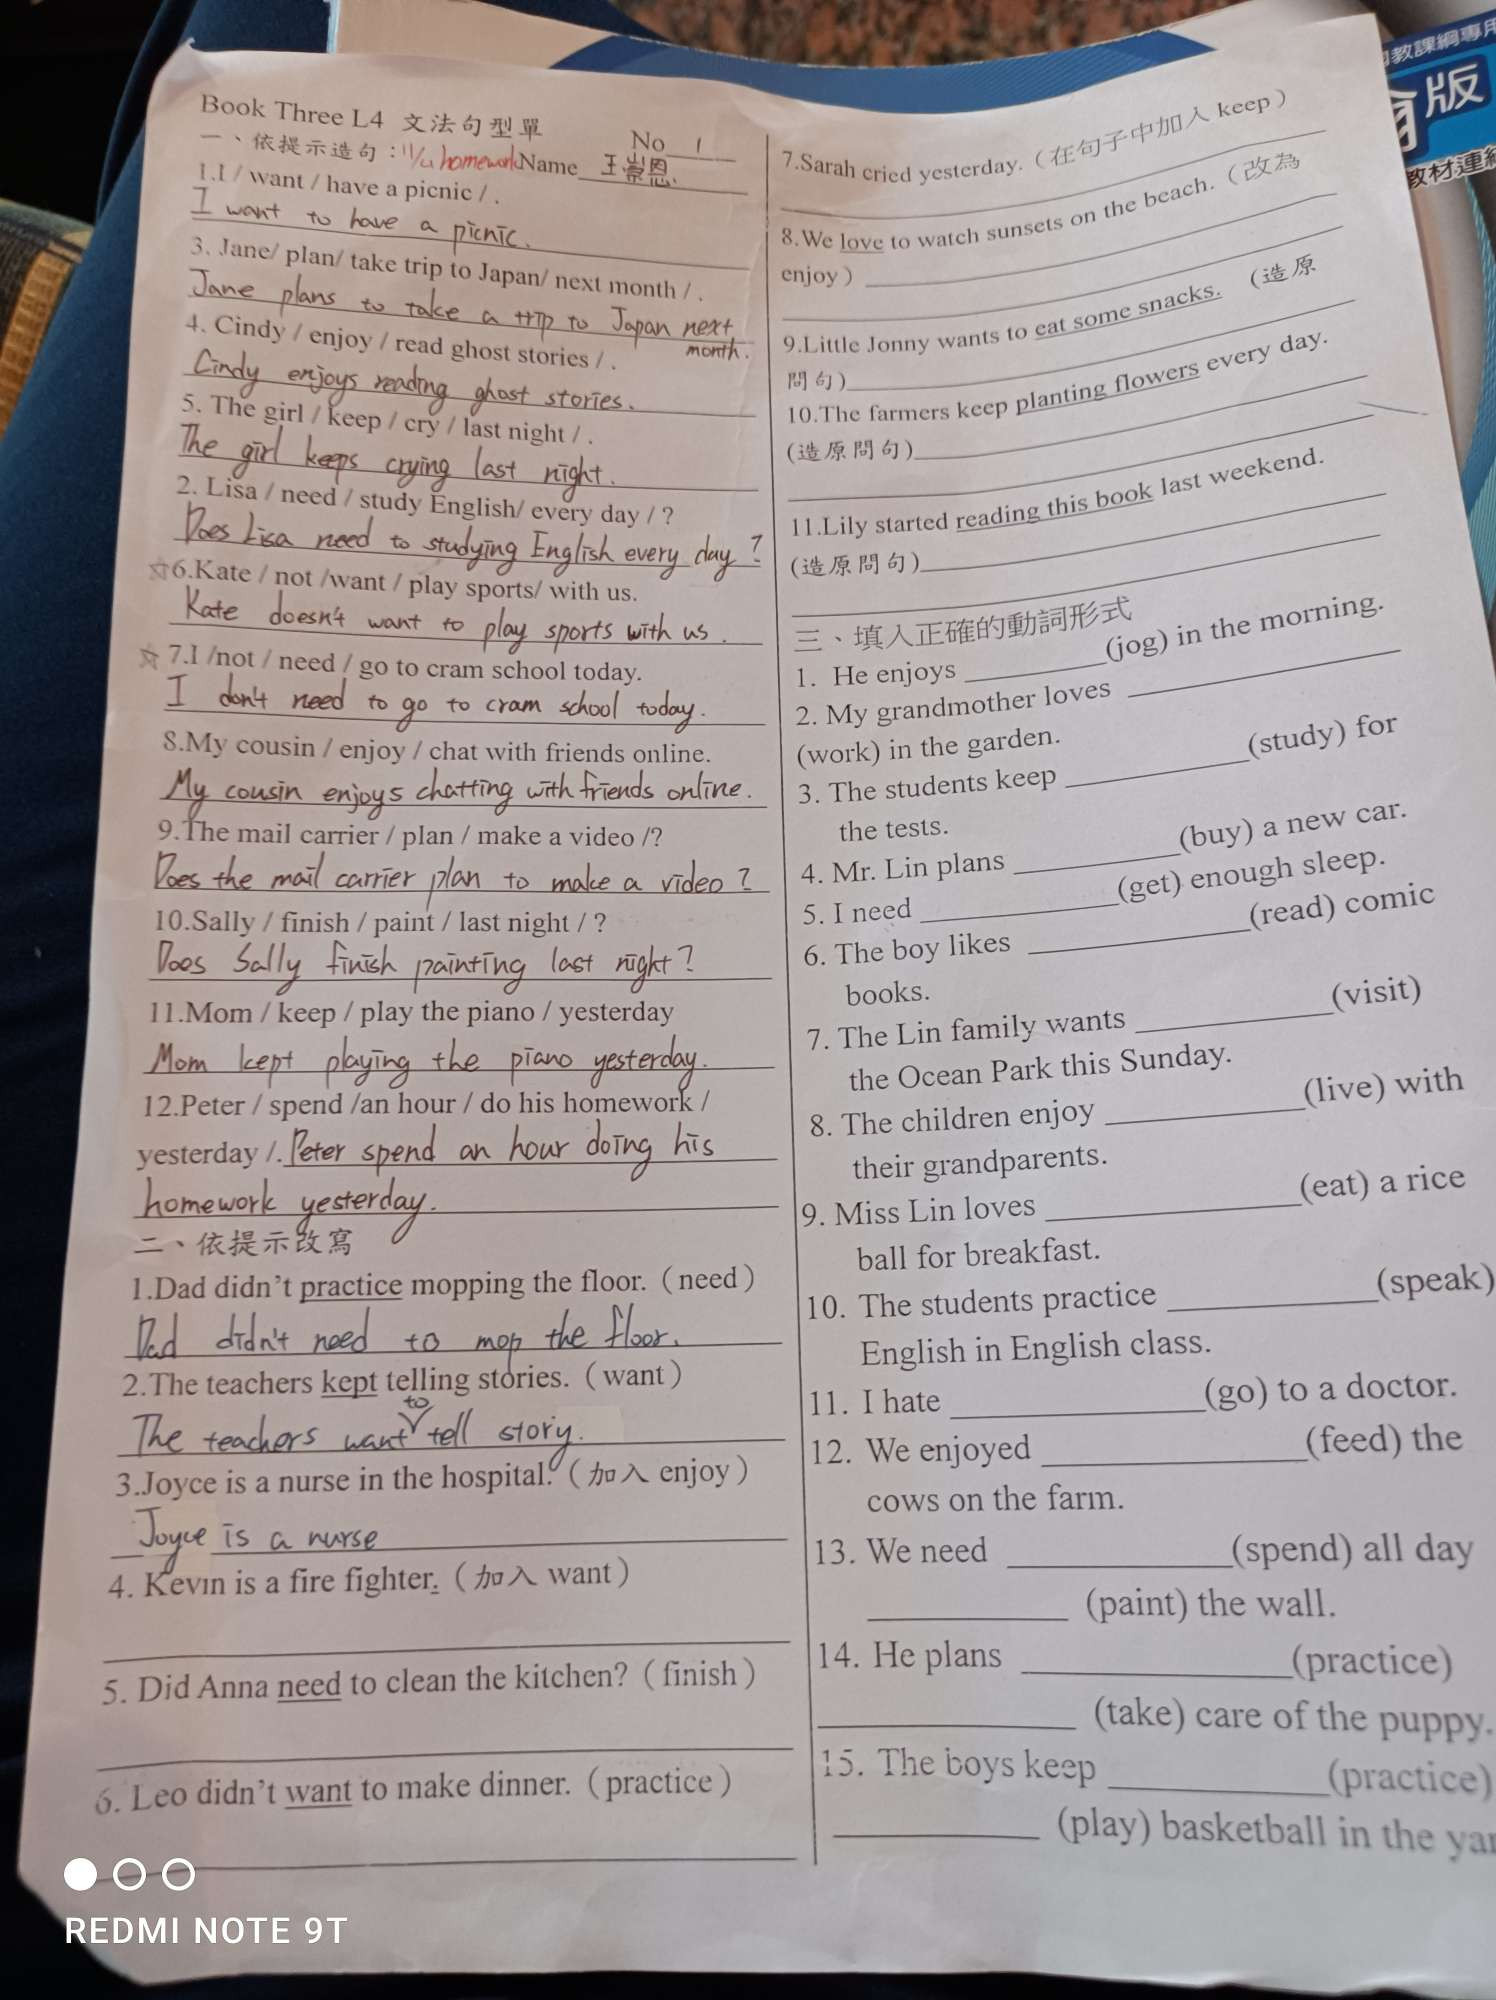 Book Three L4 文法句型單
一、依提示造句：11/4 homework
No 1
Name 王崇恩
1.I / want / have a picnic / .
I want to have a picnic.
3. Jane/ plan/ take trip to Japan/ next month / .
Jane plans to take a trip to Japan next
month.
4. Cindy / enjoy / read ghost stories / .
Cindy enjoys reading ghost stories.
5. The girl / keep / cry / last night / .
The girl keeps crying last night.
2. Lisa / need / study English/ every day / ?
Does Lisa need to studying English every day ?
☆6.Kate / not /want / play sports/ with us.
Kate doesn't want to play sports with us .
☆ 7.I /not / need / go to cram school today.
I don't need to go to cram school today.
8.My cousin / enjoy / chat with friends online.
My cousin enjoys chatting with friends online.
9.The mail carrier / plan / make a video /?
Does the mail carrier plan to make a video ?
10.Sally / finish / paint / last night / ?
Does Sally finish painting last night ?
11.Mom / keep / play the piano / yesterday
Mom kept playing the piano yesterday.
12.Peter / spend /an hour / do his homework /
yesterday /. Peter spend an hour doing his
homework yesterday.
二、依提示改寫
1.Dad didn't practice mopping the floor.（need）
Dad didn't need to mop the floor.
2.The teachers kept telling stories.（want）
The teachers want to tell story.
3.Joyce is a nurse in the hospital.（加入 enjoy）
Joyce is a nurse
4. Kevin is a fire fighter.（加入 want）
5. Did Anna need to clean the kitchen?（finish）
6. Leo didn't want to make dinner.（practice）
7.Sarah cried yesterday.（在句子中加入 keep）
8.We love to watch sunsets on the beach.（改為
enjoy）
9.Little Jonny wants to eat some snacks. (造原
問句)
10.The farmers keep planting flowers every day.
(造原問句)
11.Lily started reading this book last weekend.
(造原問句)
三、填入正確的動詞形式
1. He enjoys ________(jog) in the morning.
2. My grandmother loves ________
(work) in the garden.
3. The students keep ________(study) for
the tests.
4. Mr. Lin plans ________(buy) a new car.
5. I need ________(get) enough sleep.
6. The boy likes ________(read) comic
books.
7. The Lin family wants ________(visit)
the Ocean Park this Sunday.
8. The children enjoy ________(live) with
their grandparents.
9. Miss Lin loves ________(eat) a rice
ball for breakfast.
10. The students practice ________(speak)
English in English class.
11. I hate ________(go) to a doctor.
12. We enjoyed ________(feed) the
cows on the farm.
13. We need ________(spend) all day
________ (paint) the wall.
14. He plans ________(practice)
________ (take) care of the puppy.
15. The boys keep ________(practice)
________ (play) basketball in the yar
教課綱專用
版
教材連絡
REDMI NOTE 9T